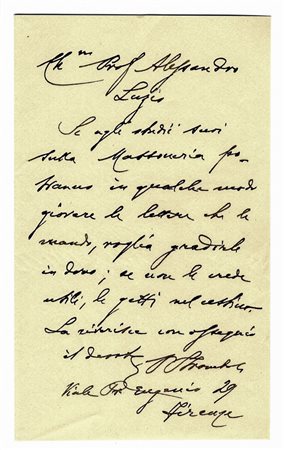 Ch.mo Prof Alessandro
Luzio
Se agli studii suoi
sulla Massoneria po-
tranno in qualche modo
giovare le lettere che le
mando, voglia gradirle
in dono; se non le crede
utili, le getti nel cestino.
La riverisce con ossequio
il devot
Viale Pr. Eugenio 29
Firenze